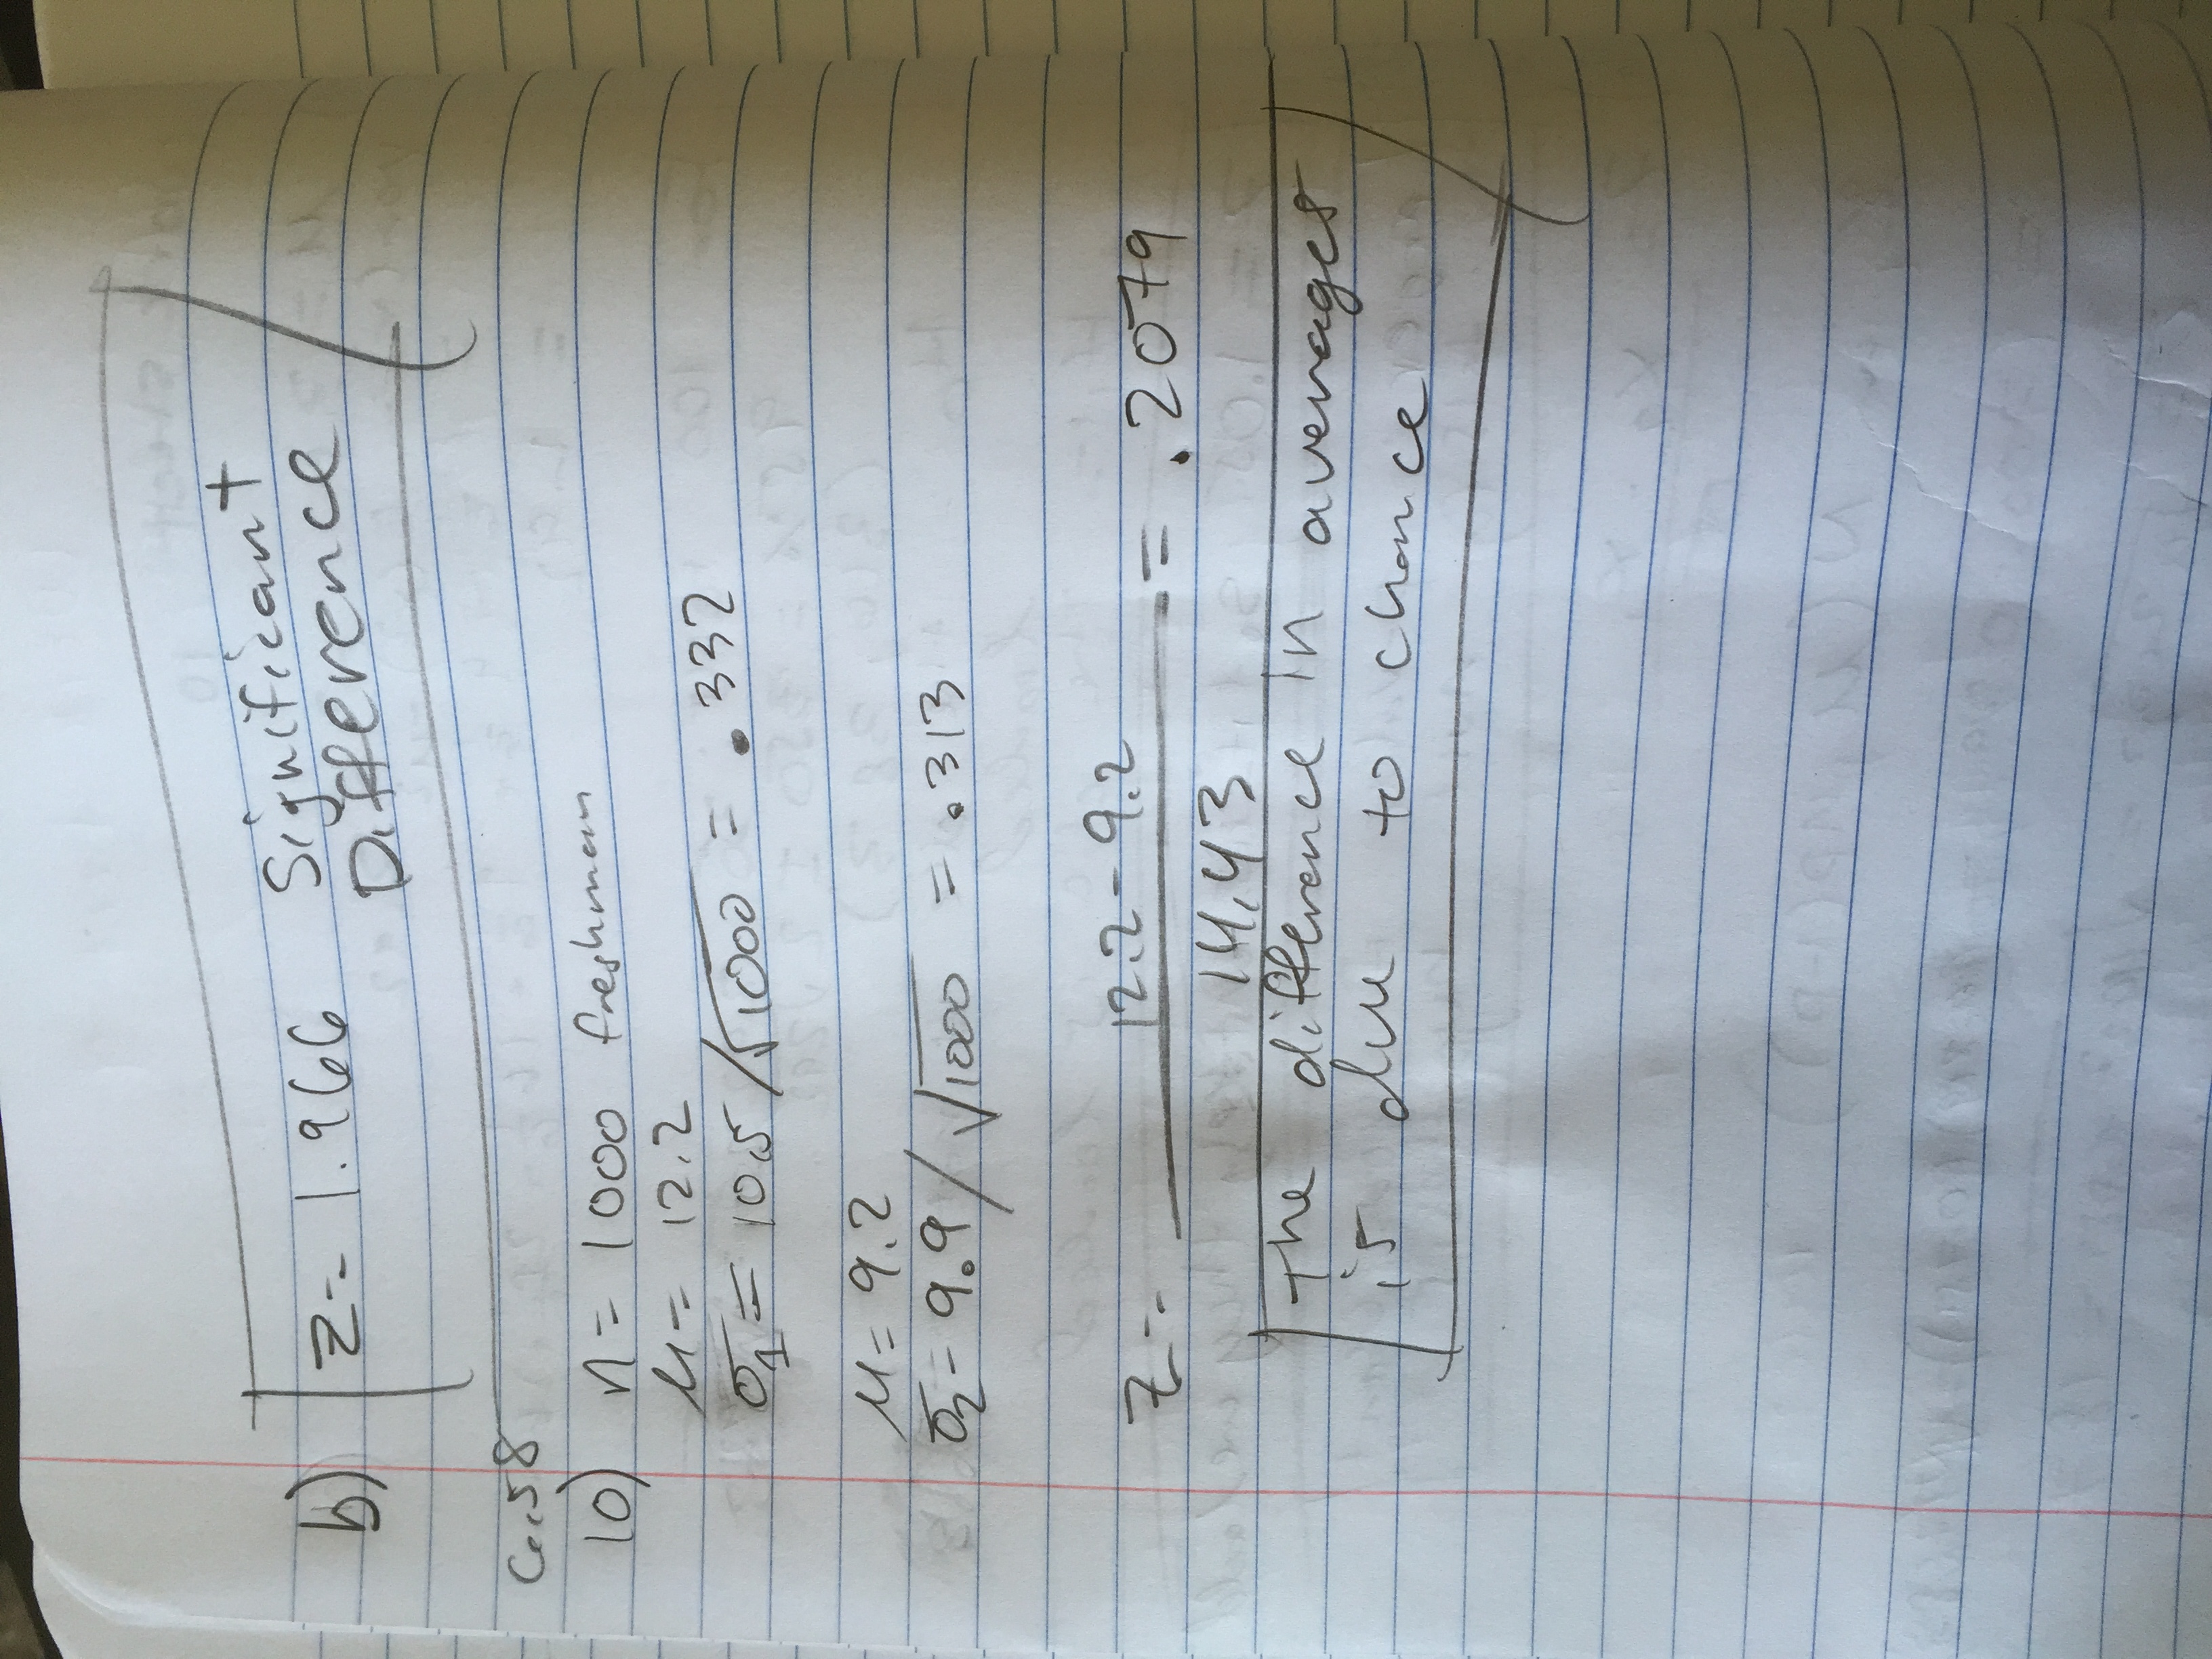 b) z = 1.966 Significant
Difference
10) n = 1000 freshmen
μ = 12.2
σ1 = 10.5 / √1000 = .332
μ = 9.2
σ2 = 9.9 / √1000 = .313
z = 12.2 - 9.2 = .2079
14.43
The difference in averages
is due to chance